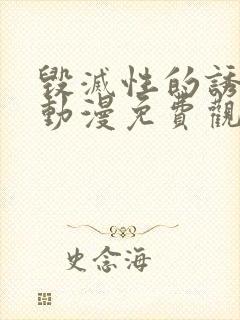 毀滅性的誘
動漫免費觀
史念海